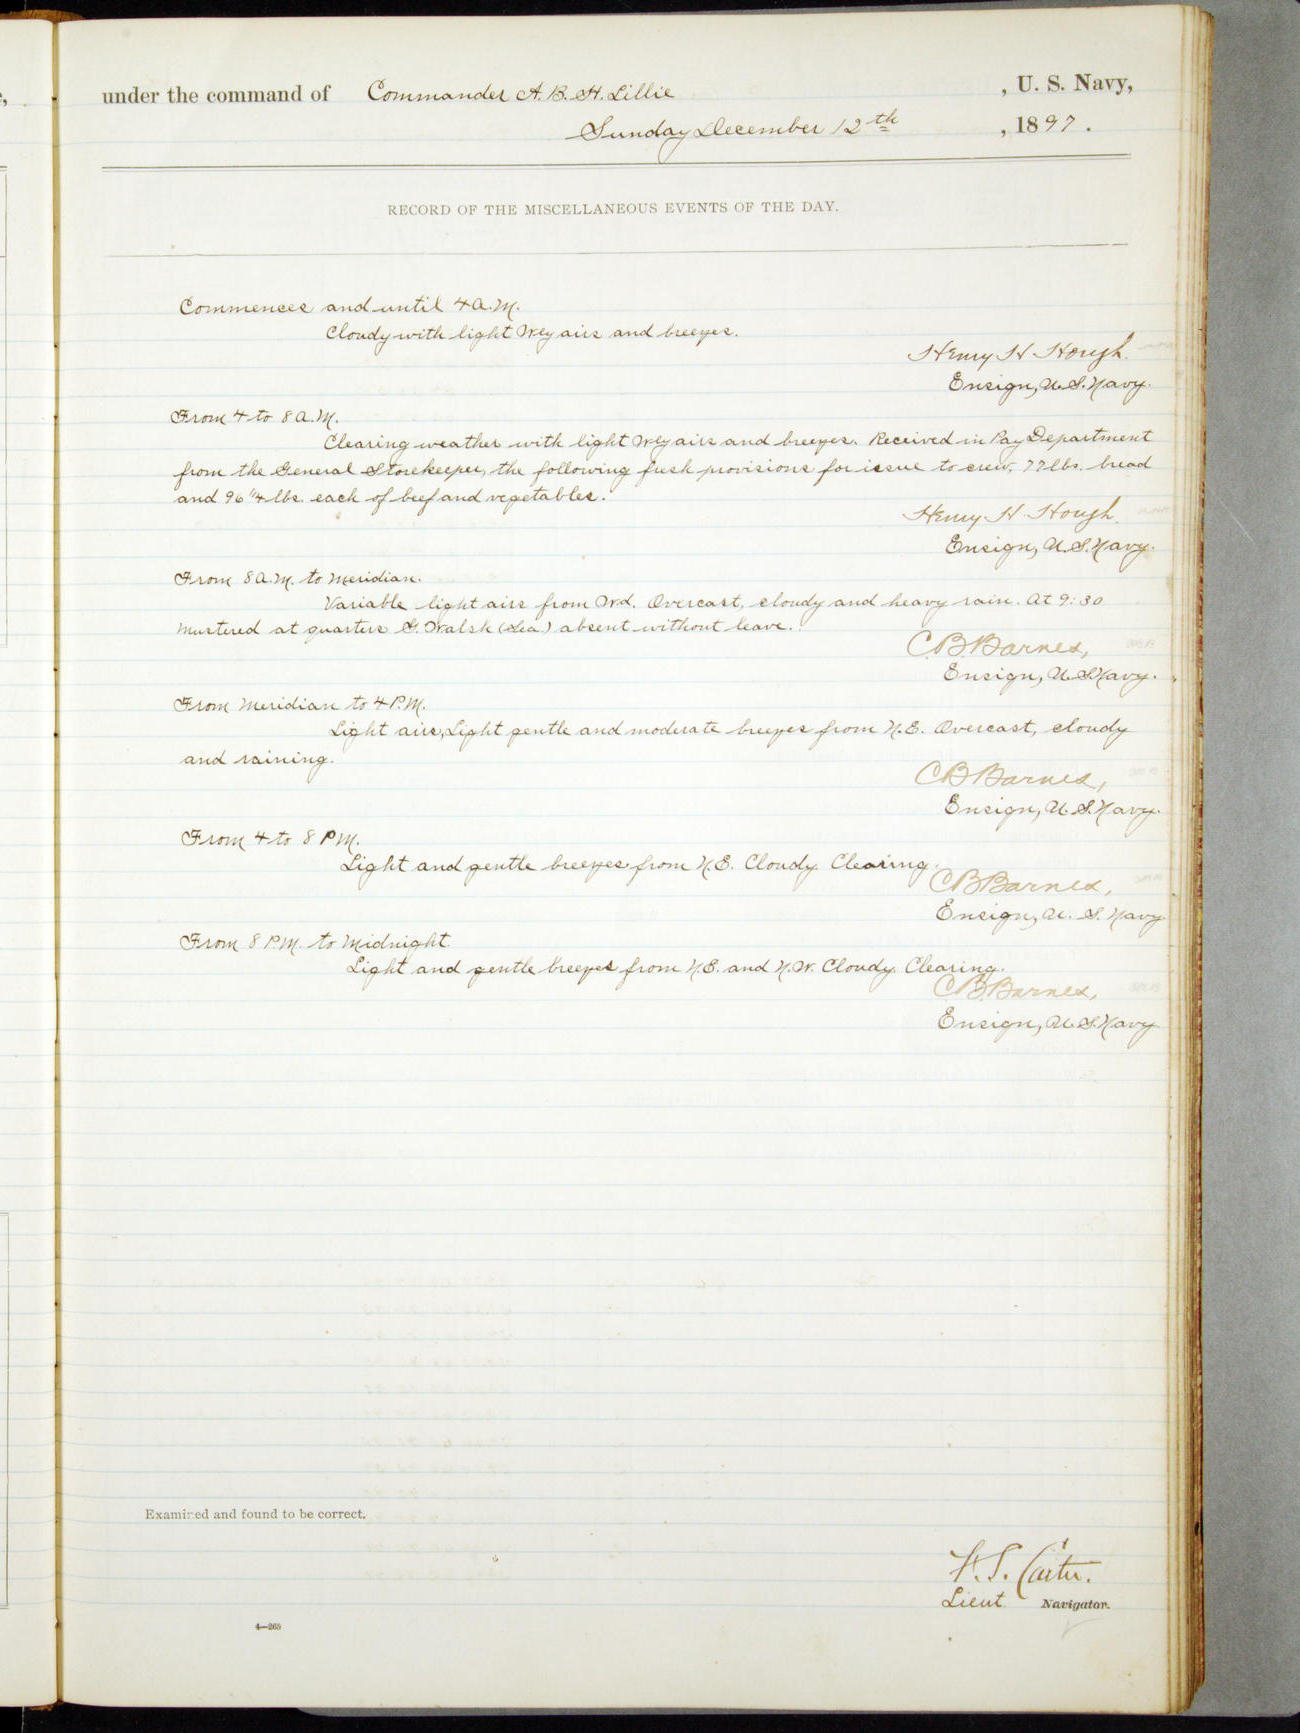 under the command of Commander A. B. H. Lillie , U. S. Navy,
Sunday December 12th , 1897.
RECORD OF THE MISCELLANEOUS EVENTS OF THE DAY.
Commences and until 4 A.M.
Cloudy with light Wly airs and breezes.
Henry H Hough.
Ensign, U.S. Navy.
From 4 to 8 A.M.
Clearing weather with light Wly airs and breezes. Received in Pay Department
from the General Storekeeper, the following fresh provisions for issue to crew. 77 lbs. bread
and 96 1/4 lbs. each of beef and vegetables.
Henry H. Hough.
Ensign, U.S. Navy.
From 8 A.M. to Meridian.
Variable light airs from Wd. Overcast, cloudy and heavy rain. At 9:30
mustered at quarters G. Walsh (Sea) absent without leave.
C.B. Barnes,
Ensign, U.S. Navy.
From Meridian to 4 P.M.
Light airs, Light gentle and moderate breezes from N.E. Overcast, cloudy
and raining.
C B Barnes,
Ensign, U.S. Navy.
From 4 to 8 P.M.
Light and gentle breezes from N.E. Cloudy. Clearing.
C B Barnes,
Ensign, U. S. Navy
From 8 P.M. to Midnight.
Light and gentle breezes from N.E. and N.W. Cloudy. Clearing.
C.B. Barnes,
Ensign, U.S. Navy
Examined and found to be correct.
Carter.
Lieut Navigator.
4—265